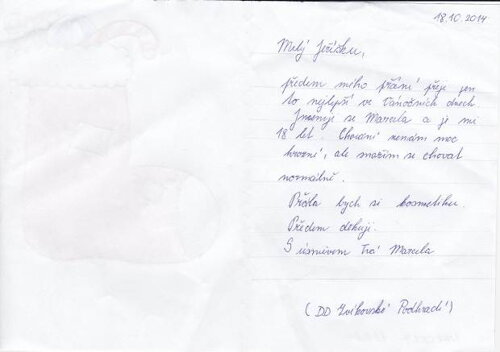 18.10.2014
Milý Ježíšku,
předem mého přání přeji jen
to nejlepší ve Vánočních dnech.
Jmenuji se Marcela a je mi
18 let. Chování nemám moc
hrozné, ale snažím se chovat
normálně.
Přála bych si kosmetiku.
Předem děkuji.
S úsměvem Tvá Marcela
(DD Zvíkovské Podhradí)